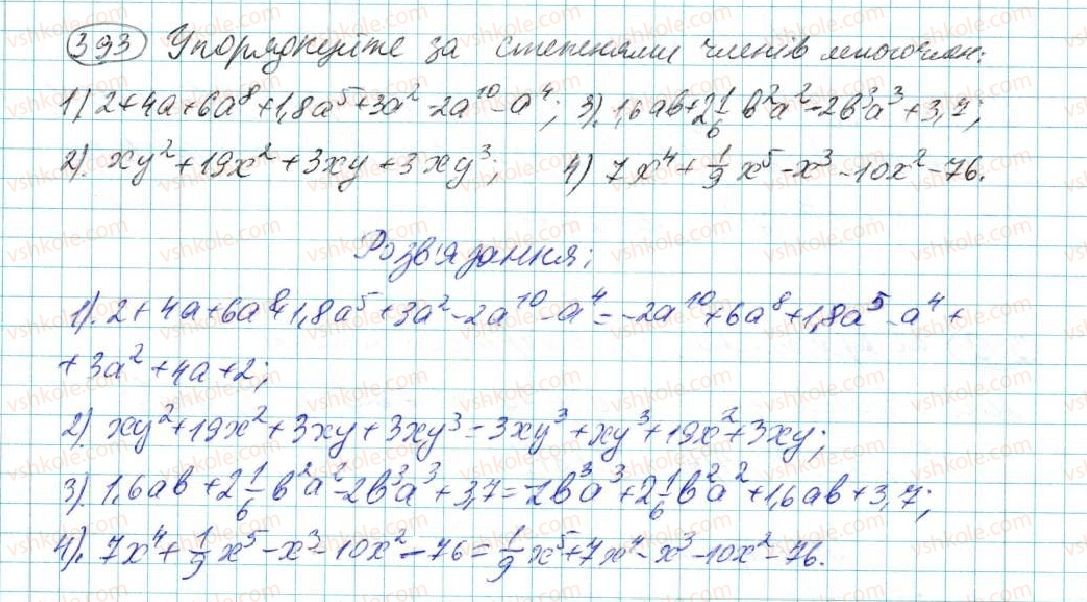 393 Упорядкуйте за степенями членів многочлен:
1) 2+4a+6a⁸+1,8a⁵+3a²-2a¹⁰-a⁴; 3). 1,6ab+2 1/6 b²a²-2b³a³+3,7;
2). xy²+19x²+3xy+3xy³; 4) 7x⁴+1/9 x⁵-x³-10x²-76.
Розв'язання:
1). 2+4a+6a⁸+1,8a⁵+3a²-2a¹⁰-a⁴=-2a¹⁰+6a⁸+1,8a⁵-a⁴+
+3a²+4a+2;
2) xy²+19x²+3xy+3xy³=3xy³+xy³+19x²+3xy;
3). 1,6ab+2 1/6 b²a²-2b³a³+3,7=-2b³a³+2 1/6 b²a²+1,6ab+3,7;
4). 7x⁴+1/9 x⁵-x³-10x²-76=1/9 x⁵+7x⁴-x³-10x²-76.